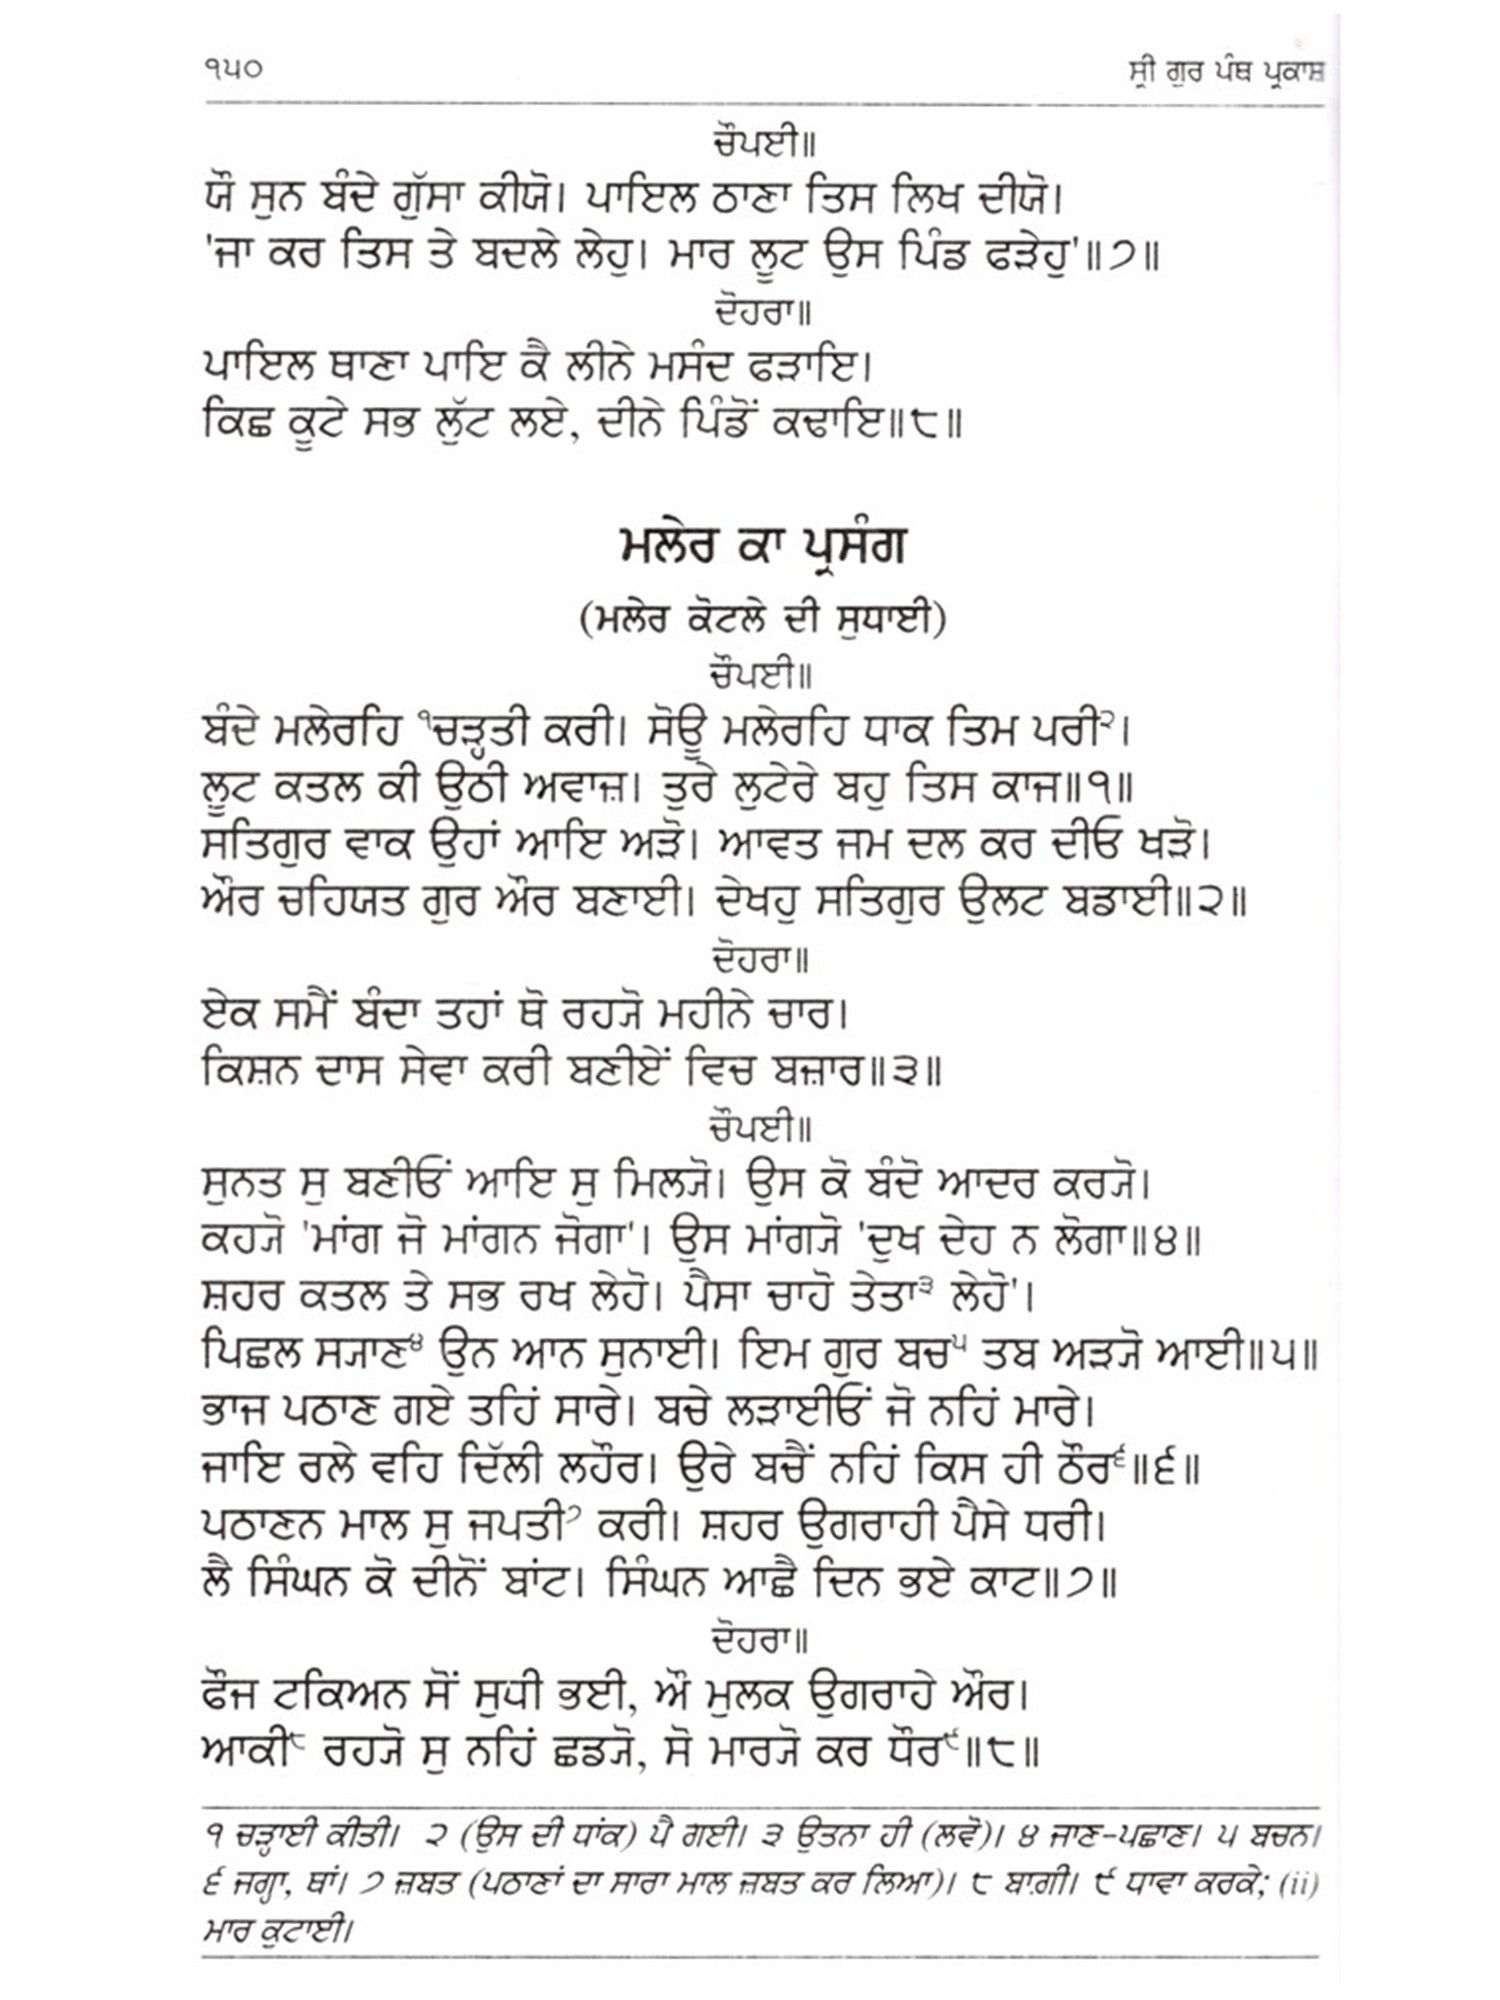 ੧੫੦ ਸ੍ਰੀ ਗੁਰ ਪੰਥ ਪ੍ਰਕਾਸ਼
ਚੌਪਈ॥
ਯੌ ਸੁਨ ਬੰਦੇ ਗੁੱਸਾ ਕੀਯੋ। ਪਾਇਲ ਠਾਣਾ ਤਿਸ ਲਿਖ ਦੀਯੋ।
'ਜਾ ਕਰ ਤਿਸ ਤੇ ਬਦਲੇ ਲੇਹੁ। ਮਾਰ ਲੂਟ ਉਸ ਪਿੰਡ ਫੜੇਹੁ'॥੭॥
ਦੋਹਰਾ॥
ਪਾਇਲ ਥਾਣਾ ਪਾਇ ਕੈ ਲੀਨੇ ਮਸੰਦ ਫੜਾਇ।
ਕਿਛ ਕੂਟੇ ਸਭ ਲੁੱਟ ਲਏ, ਦੀਨੇ ਪਿੰਡੋਂ ਕਢਾਇ॥੮॥
ਮਲੇਰ ਕਾ ਪ੍ਰਸੰਗ
(ਮਲੇਰ ਕੋਟਲੇ ਦੀ ਸੁਧਾਈ)
ਚੌਪਈ॥
ਬੰਦੇ ਮਲੇਰਹਿ ੧ਚੜ੍ਹਤੀ ਕਰੀ। ਸੋਊ ਮਲੇਰਹਿ ਧਾਕ ਤਿਮ ਪਰੀ੨।
ਲੂਟ ਕਤਲ ਕੀ ਉਠੀ ਅਵਾਜ਼। ਤੁਰੇ ਲੁਟੇਰੇ ਬਹੁ ਤਿਸ ਕਾਜ॥੧॥
ਸਤਿਗੁਰ ਵਾਕ ਉਹਾਂ ਆਇ ਅੜੋ। ਆਵਤ ਜਮ ਦਲ ਕਰ ਦੀਓ ਖੜੋ।
ਔਰ ਚਹਿਯਤ ਗੁਰ ਔਰ ਬਣਾਈ। ਦੇਖਹੁ ਸਤਿਗੁਰ ਉਲਟ ਬਡਾਈ॥੨॥
ਦੋਹਰਾ॥
ਏਕ ਸਮੈਂ ਬੰਦਾ ਤਹਾਂ ਥੋ ਰਹ੍ਯੋ ਮਹੀਨੇ ਚਾਰ।
ਕਿਸ਼ਨ ਦਾਸ ਸੇਵਾ ਕਰੀ ਬਣੀਏਂ ਵਿਚ ਬਜ਼ਾਰ॥੩॥
ਚੌਪਈ॥
ਸੁਨਤ ਸੁ ਬਣੀਓਂ ਆਇ ਸੁ ਮਿਲ੍ਯੋ। ਉਸ ਕੋ ਬੰਦੋ ਆਦਰ ਕਰ੍ਯੋ।
ਕਹ੍ਯੋ 'ਮਾਂਗ ਜੋ ਮਾਂਗਨ ਜੋਗਾ'। ਉਸ ਮਾਂਗ੍ਯੋ 'ਦੁਖ ਦੇਹ ਨ ਲੋਗਾ॥੪॥
ਸ਼ਹਰ ਕਤਲ ਤੇ ਸਭ ਰਖ ਲੇਹੋ। ਪੈਸਾ ਚਾਹੋ ਤੇਤਾ੩ ਲੇਹੋ'।
ਪਿਛਲ ਸ੍ਯਾਣ੪ ਉਨ ਆਨ ਸੁਨਾਈ। ਇਮ ਗੁਰ ਬਚ੫ ਤਬ ਅੜ੍ਯੋ ਆਈ॥੫॥
ਭਾਜ ਪਠਾਣ ਗਏ ਤਹਿਂ ਸਾਰੇ। ਬਚੇ ਲੜਾਈਓਂ ਜੋ ਨਹਿਂ ਮਾਰੇ।
ਜਾਇ ਰਲੇ ਵਹਿ ਦਿੱਲੀ ਲਹੌਰ। ਉਰੇ ਬਚੈਂ ਨਹਿਂ ਕਿਸ ਹੀ ਠੌਰ੬॥੬॥
ਪਠਾਣਨ ਮਾਲ ਸੁ ਜਪਤੀ੭ ਕਰੀ। ਸ਼ਹਰ ਉਗਰਾਹੀ ਪੈਸੇ ਧਰੀ।
ਲੈ ਸਿੰਘਨ ਕੋ ਦੀਨੋਂ ਬਾਂਟ। ਸਿੰਘਨ ਆਛੈ ਦਿਨ ਭਏ ਕਾਟ॥੭॥
ਦੋਹਰਾ॥
ਫੌਜ ਟਕਿਅਨ ਸੋਂ ਸੁਧੀ ਭਈ, ਔ ਮੁਲਕ ਉਗਰਾਹੇ ਔਰ।
ਆਕੀ੮ ਰਹ੍ਯੋ ਸੁ ਨਹਿਂ ਛਡ੍ਯੋ, ਸੋ ਮਾਰ੍ਯੋ ਕਰ ਧੌਰ੯॥੮॥
੧ ਚੜ੍ਹਾਈ ਕੀਤੀ। ੨ (ਉਸ ਦੀ ਧਾਂਕ) ਪੈ ਗਈ। ੩ ਉਤਨਾ ਹੀ (ਲਵੋ)। ੪ ਜਾਣ-ਪਛਾਣ। ੫ ਬਚਨ।
੬ ਜਗ੍ਹਾ, ਥਾਂ। ੭ ਜ਼ਬਤ (ਪਠਾਣਾਂ ਦਾ ਸਾਰਾ ਮਾਲ ਜ਼ਬਤ ਕਰ ਲਿਆ)। ੮ ਬਾਗ਼ੀ। ੯ ਧਾਵਾ ਕਰਕੇ; (ii)
ਮਾਰ ਕੁਟਾਈ।